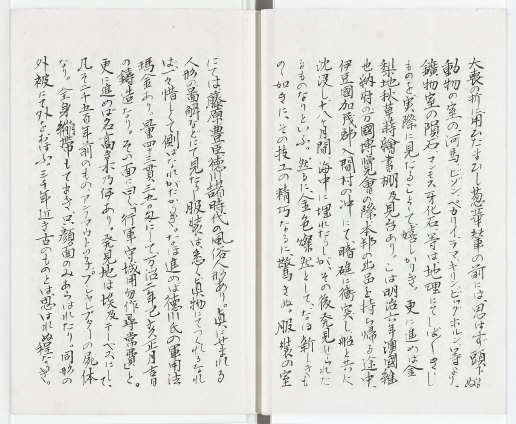 大喪の折用ゐたまひし葱華輦の前には思はず頭下りぬ。
動物の室の河馬、ビゾン、ペガリー、ラマ、キリン、ビッグホルン等より、
鑛物室の隕石、マンモス牙化石等は地理にてしば〱きゝし
ものを實際に見たることゝて嬉しかりき。更に進めば金
梨地秋草蒔繪書棚及見台あり。こは明治六年澳國維
也納府の万國博覧會の際本邦の出品を持ち帰る途中、
伊豆國加茂郡入間村の沖にて暗礁に衝突し船と共に
沈没し十八ケ月間海中に埋れたりしが、その後発見せられた
るものなりといふ。然るに金色燦然として、なほ新しきも
の如きに、その技工の精巧なるに驚きぬ。服装の室
にては藤原豊臣徳川諸時代の風俗人形あり。眞にせまれる
人形の圖解などにて見たる服装は悉く眞物もてつくれるなれ
ば、一々惜しく倒はなれがたかりき。なほ進めば徳川氏の軍用法
瑪金あり。量四十三貫三百九十匁にして万治二年己亥正月吉日
の鋳造なり。その面に曰く、行軍守城用勿作尋常費と。
更に進めば名高き木乃伊あり。発見地は埃及テーベスにして、
凡そ二千五百年前のもの、アンクワウトの子、プシャレプターの屍体
なり。全身繃帯もてまき、只顔面のみあらはれたり。同形の
外被にて外をおほふ。三千年近き古のものとは思はれぬ程なりき。